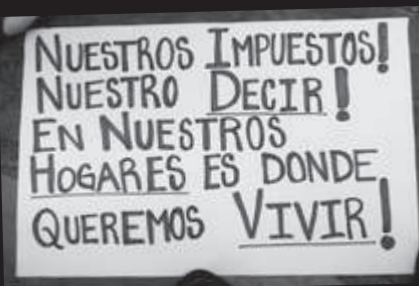 NUESTROS IMPUESTOS!
NUESTRO DECIR!
EN NUESTROS
HOGARES ES DONDE
QUEREMOS VIVIR!